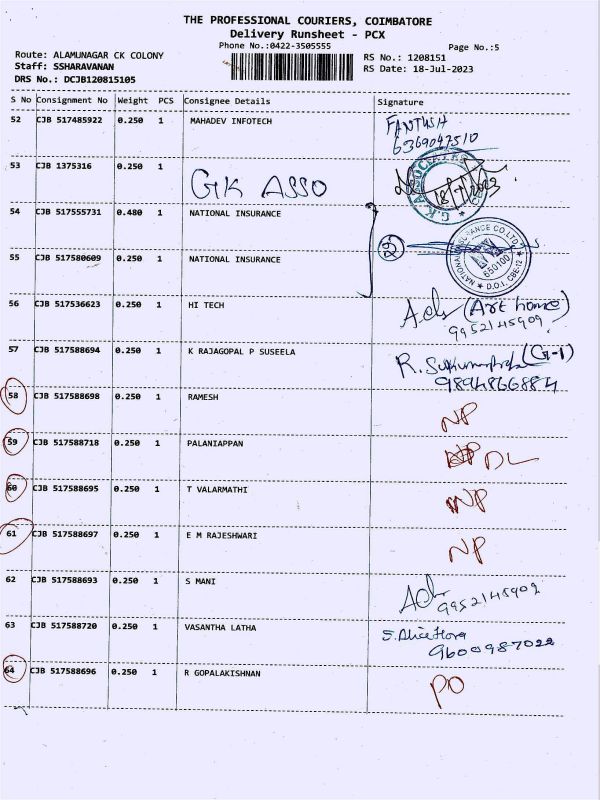 THE PROFESSIONAL COURIERS, COIMBATORE
Delivery Runsheet - PCX
Phone No.:0422-3505555 Page No.:5
Route: ALAMUNAGAR CK COLONY RS No.: 1208151
Staff: SSHARAVANAN RS Date: 18-Jul-2023
DRS No.: DCJB120815105
S No Consignment No Weight PCS Consignee Details Signature
52 CJB 517485922 0.250 1 MAHADEV INFOTECH
53 CJB 1375316 0.250 1 GK ASSO 18/7/2023
54 CJB 517555731 0.480 1 NATIONAL INSURANCE
55 CJB 517580609 0.250 1 NATIONAL INSURANCE 2
NATIONAL INSURANCE CO.LTD. 650100 * D.O.I. CBE-12 *
56 CJB 517536623 0.250 1 HI TECH (Art home)
9952145909
57 CJB 517588694 0.250 1 K RAJAGOPAL P SUSEELA (G-1)
9894866884
58 CJB 517588698 0.250 1 RAMESH NP
59 CJB 517588718 0.250 1 PALANIAPPAN DL
60 CJB 517588695 0.250 1 T VALARMATHI NP
61 CJB 517588697 0.250 1 E M RAJESHWARI NP
62 CJB 517588693 0.250 1 S MANI
9952145909
63 CJB 517588720 0.250 1 VASANTHA LATHA
9600987022
64 CJB 517588696 0.250 1 R GOPALAKISHNAN PO